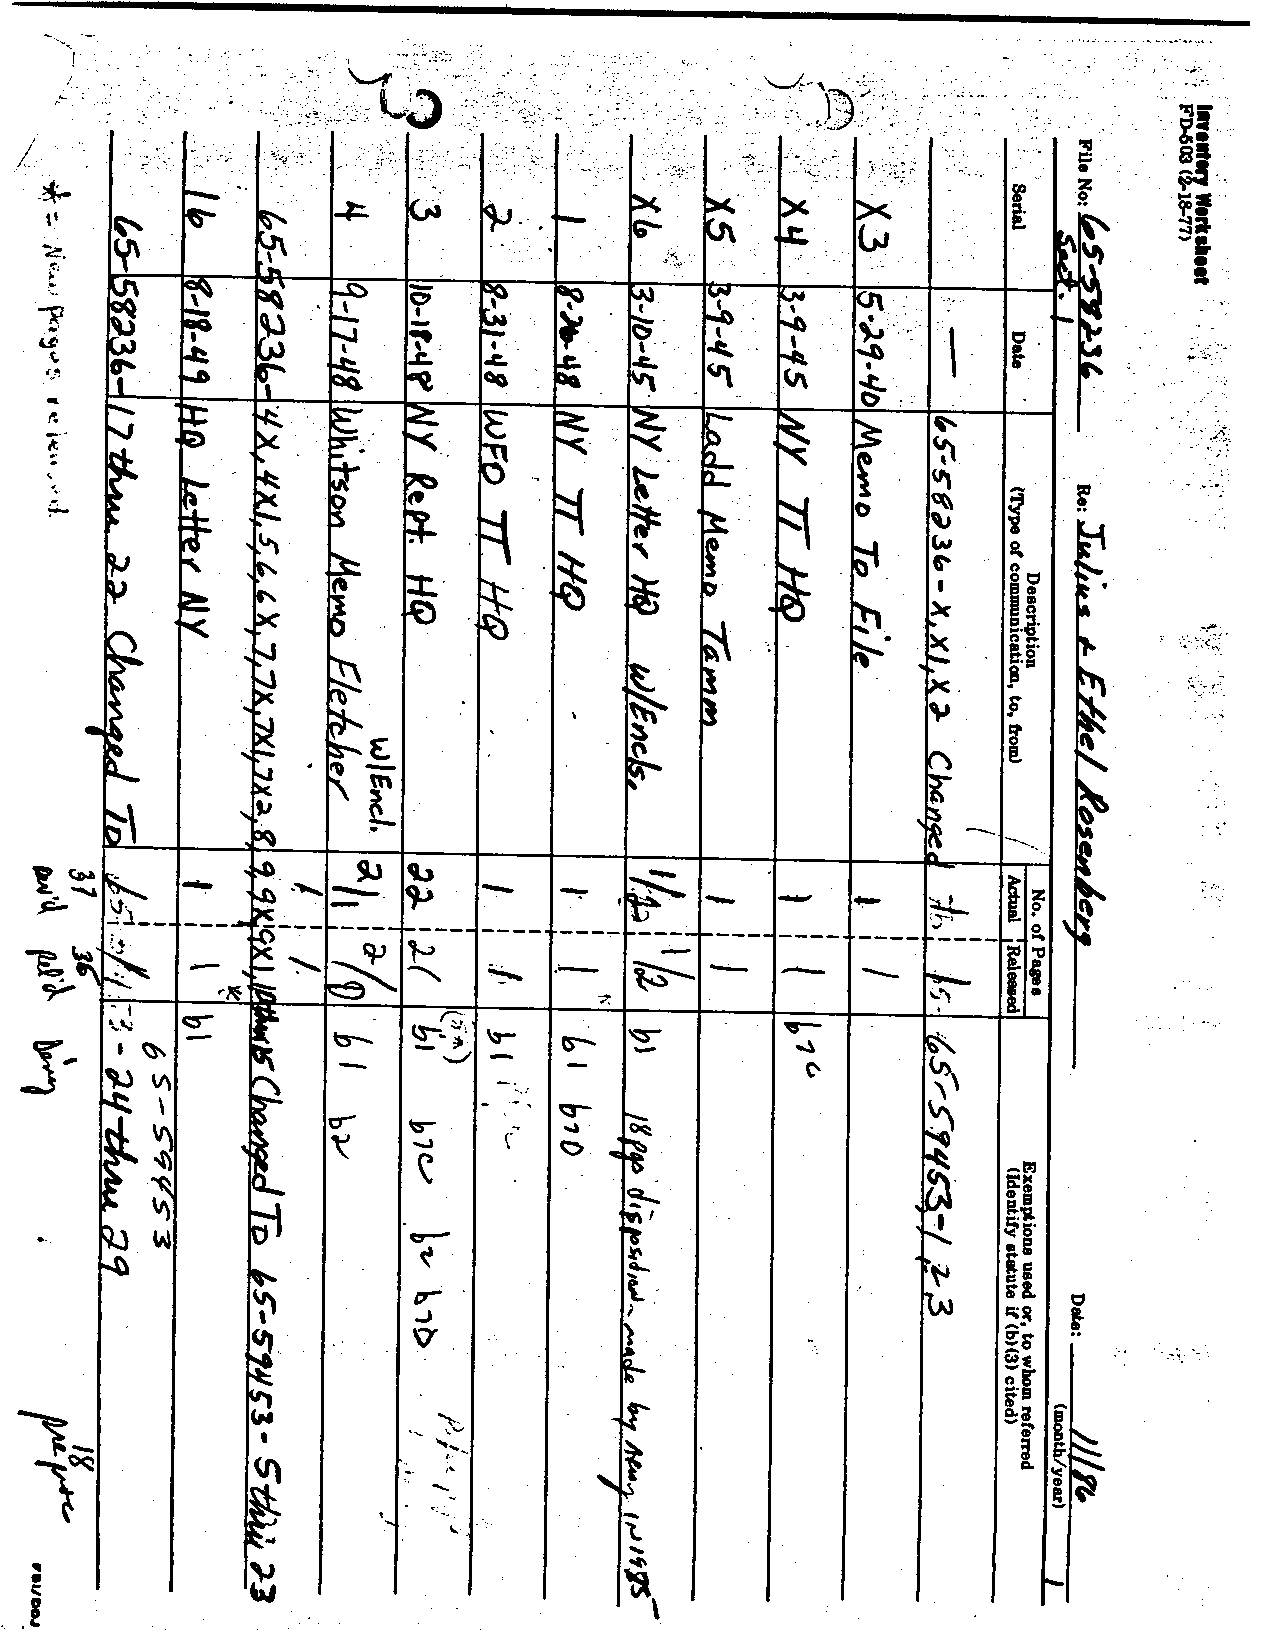 Inventory Worksheet
FD-503 (2-18-77)
File No: 65-58236 Re: Julius & Ethel Rosenberg Date: 11/86
Sect. 1 (month/year) 1
Serial Date Description (Type of communication, to, from) No. of Pages Actual Released Exemptions used or, to whom referred (Identify statute if (b)(3) cited)
— 65-58236-X, X1, X2 Changed To 65-59453-1,2,3
X3 5-29-40 Memo To File 1 1
X4 3-9-45 NY TT HQ 1 1 b7c
X5 3-9-45 Ladd Memo Tamm 1 1
X6 3-10-45 NY Letter HQ W/Encls. 1/2 1/2 b1 18 pgs disposition made by Army IN 1985
1 8-26-48 NY TT HQ 1 1 b1 b7D
2 8-31-48 WFO TT HQ 1 1 b1
3 10-18-48 NY Rept. HQ 22 21 b1 b7c b2 b7D
W/Encl.
4 9-17-48 Whitson Memo Fletcher 2/1 2/0 b1 b2
1 1
65-58236-4X, 4X1, 5, 6, 6X, 7, 7X, 7X1, 7X2, 8, 9, 9X, 9X1, 10 thru 15 Changed To 65-59453-5 thru 23
16 8-18-49 HQ Letter NY 1 1 * b1
65-59453
65-58236-17 thru 22 Changed To -24 thru 29
37 36 18
* = New pages
Rel'd
FBI/DOJ